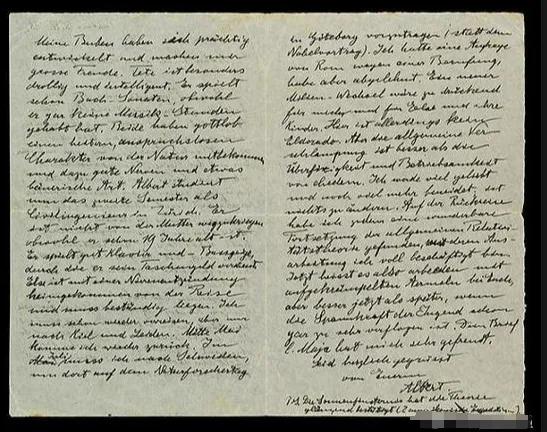 Meine Buben haben sich prächtig
entwickelt und machen mir
grosse Freude. Tete ist besonders
drollig und intelligent. Er spielt
schon Bach-Sonaten, obwohl
er gar keine Musik-Stunden
gehabt hat. Beide haben gottlob
einen heitern, anspruchslosen
Charakter von der Natur mitbekommen
und dazu gute Nerven und etwas
bäurische Art. Albert studiert
nun das zweite Semester als
Civilingenieur in Zürich. Er
ist nicht von der Mutter wegzukriegen
obwohl er schon 19 Jahre alt ist.
Er spielt gut Klavier und
durch die er sein Taschengeld verdient.
Else ist mit einer Nierenentzündung
heimgekommen von der Reise
und muss beständig liegen. Ich
muss schon wieder verreisen, aber nur
nach Kiel und Leiden. Mitte Mai
komme ich wieder zurück. Im
Juli muss ich nach Schweden,
um dort auf dem Naturforschertag
in Göteborg vorzutragen (statt dem
Nobelvortrag). Ich hatte eine Anfrage
von Rom wegen einer Berufung,
habe aber abgelehnt. Ein neuer
Wechsel wäre zu drückend
für mich und für Else und ihre
Kinder. Hier ist allerdings kein
Eldorado. Aber die allgemeine Ver-
schlampung ist besser als die
und Betriebsamkeit
von ehedem. Ich werde viel geliebt
und noch viel mehr beneidet, ist
nichts zu ändern. Auf der Rückreise
habe ich zudem eine wunderbare
Fortsetzung der allgemeinen Relativi-
tätstheorie gefunden, mit deren Aus-
arbeitung ich voll beschäftigt bin.
Jetzt heisst es also arbeiten mit
aufgekrempelten Ärmeln
aber besser jetzt als später, wenn
die Spannkraft der Jugend schon
gar zu sehr verflogen ist. Dein Brief
l. Maja hat mich sehr gefreut.
Seid herzlich gegrüsst
von Euerm
Albert.
P.S. Die Sonnenfinsternis hat die Theorie
glänzend bestätigt